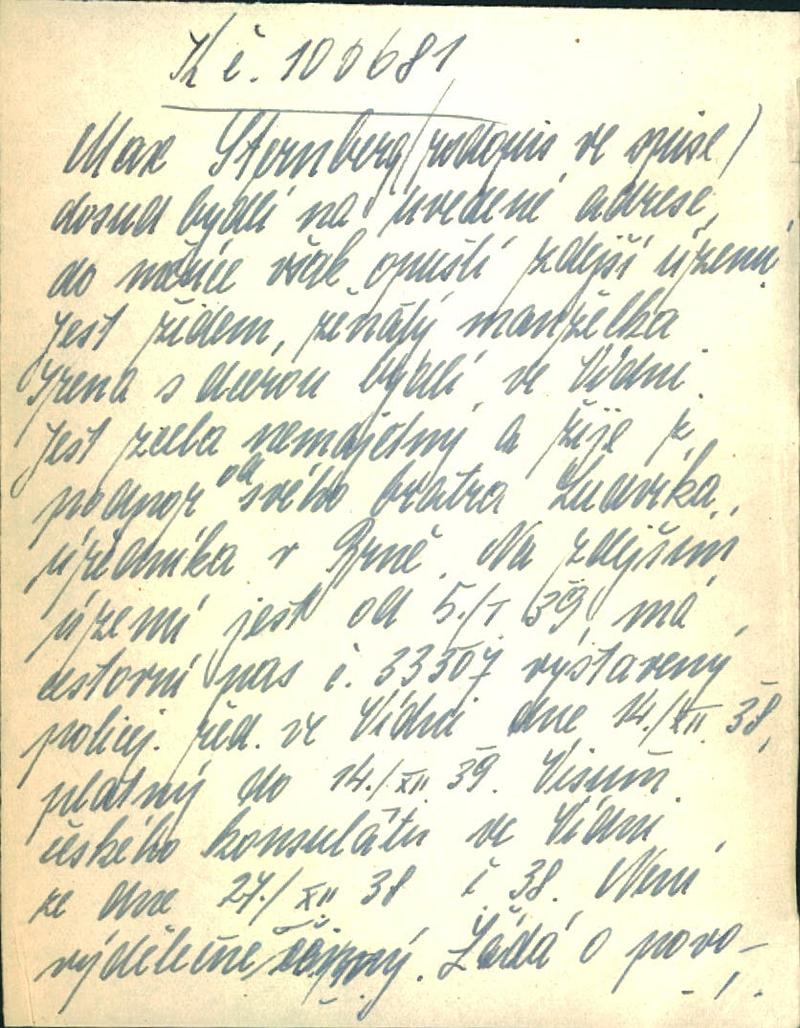 K č. 100681
Max Sternberg (rodopis ve spise)
dosud bydlí na uvedené adrese,
do měsíce však opustí zdejší území.
Jest židem, ženatý manželka
Irena s dcerou bydlí ve Vídni.
Jest zcela nemajetný a žije z
podpor od svého bratra Ludvíka,
úředníka v Brně. Na zdejším
území jest od 5./I 39, má
cestovní pas č. 33507 vystavený
policej. řed. ve Vídni dne 14./XII. 38,
platný do 14./XII. 39. Visum
českého konsulátu ve Vídni
ze dne 27./XII 38 č. 38. Není
výdělečně činný. Žádá o povo-